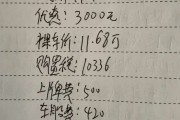 优惠：3000元
裸车价：11.68万
购置税：10336
上牌费：500
车船费：420